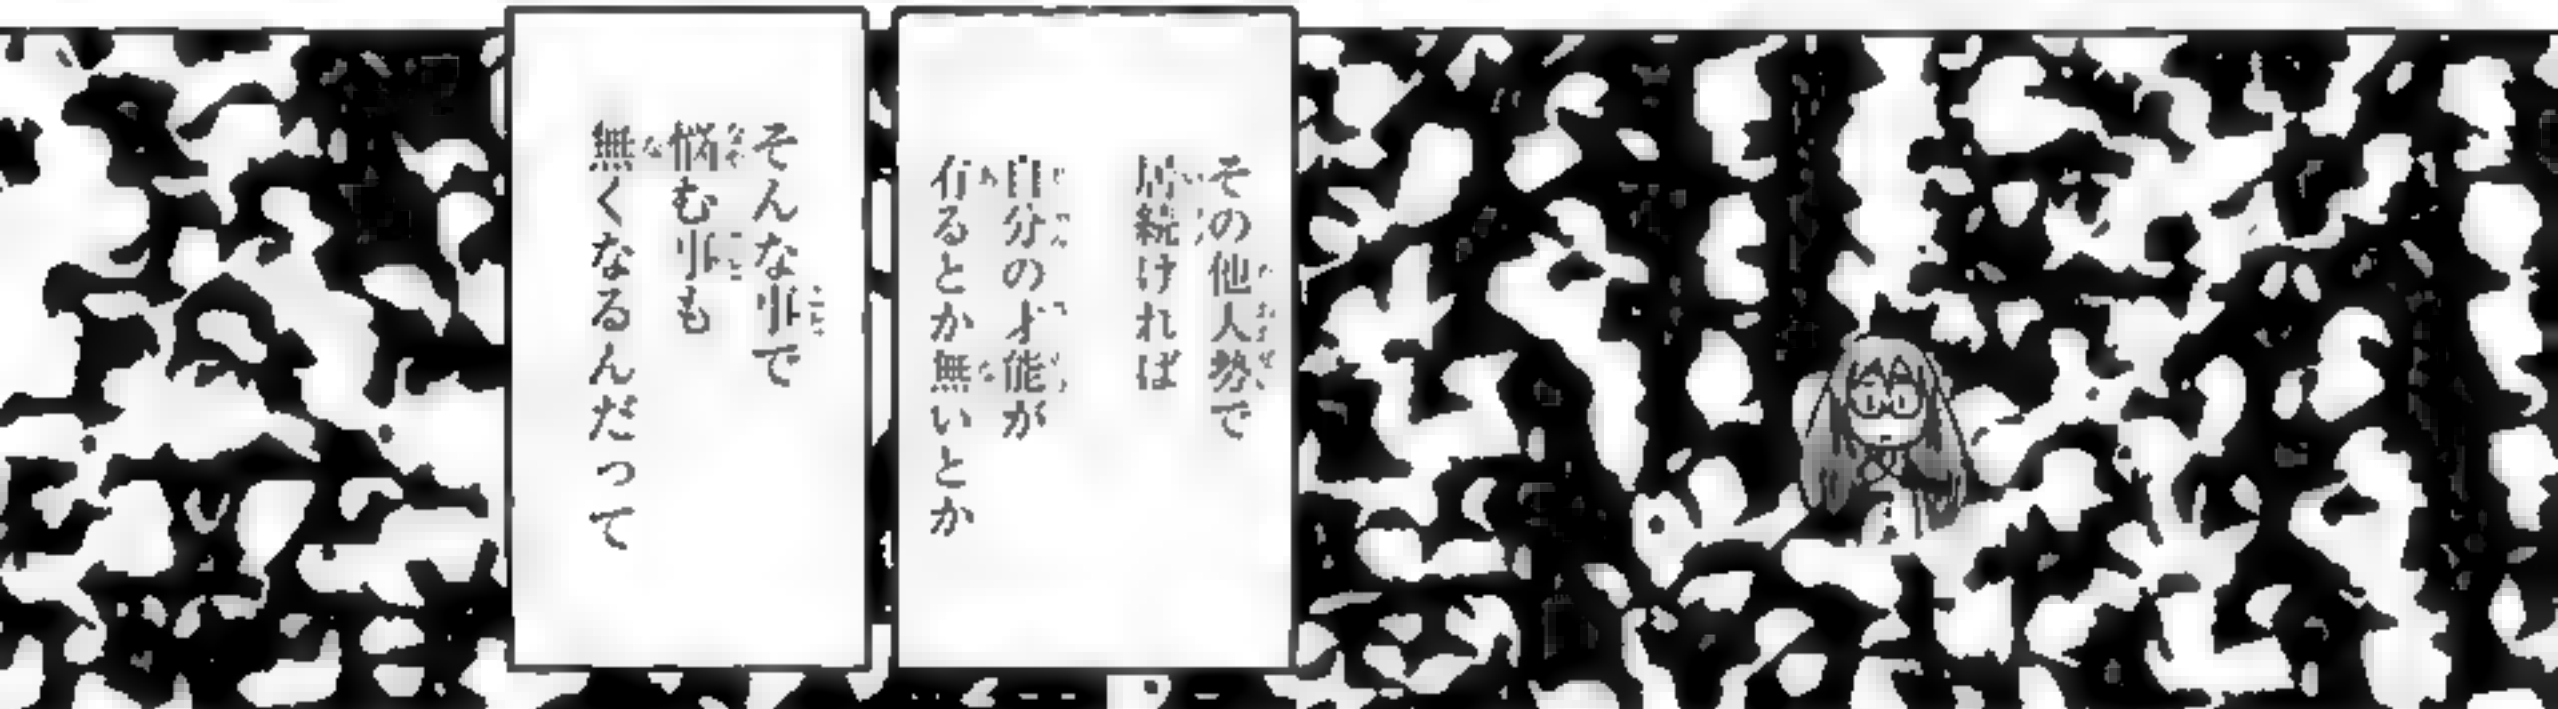 その他人勢で
居続ければ
自分の才能が
有るとか無いとか
そんな事で
悩む事も
無くなるんだって